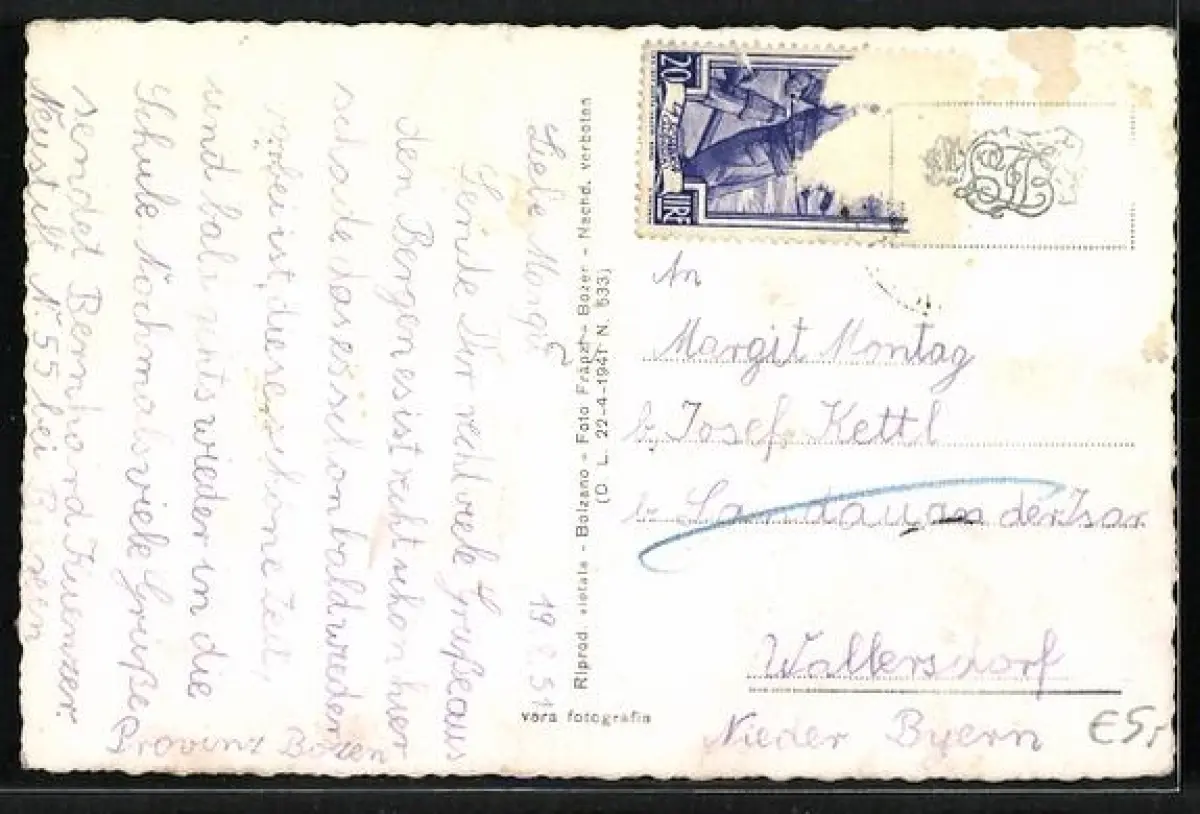 19. 8. 51
Liebe Margit
Sende Dir recht viele Grüße aus
den Bergen es ist recht schon hier
schade das es schon bald wieder
vorbei ist, diese schöne Zeit,
und bald wieder in die
Schule Nochmals viele Grüße
sendet Bernhard Kuenzer.
Neustift Nr. 55 bei Brixen
Provinz Bozen
Riprod. vietata - Bolzano - Foto Fränzl - Bozen - Nachd. verboten
(D L. 22-4-1941 N. 633)
vera fotografia
20
LIRE
An
Margit Montag
b, Josef Kettl
b. Landau an der Isar
Wallersdorf
Nieder Byern
€5,-